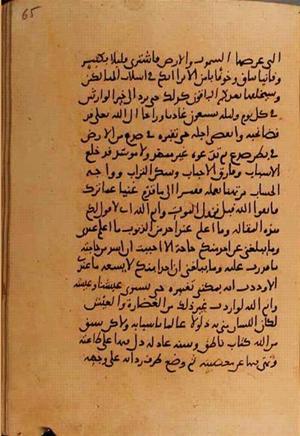 65
التي عرضها السموات والارض فاشترى قليلا بكثير
وفانيا بباق وخوفا بامن الا ترون انكم في اسلاب الهالكين
وسيخلفها بعدكم الباقون كذلك حتى ترد الى خير الوارثين
في كل يوم وليلة تشيعون غاديا ورائحا الى الله تعلى قد
قضا نحبه وانقضى اجله حتى تغيبوه في صدع من الارض
في بطن صدع ثم تدعوه غير ممهد ولا موسد قد خلع
الاسباب وفارق الاحباب وسكن التراب وواجه
الحساب مرتهنا بعمله فقيرا الى ما قدم غنيا عما ترك
فاتقوا الله قبل نزول الموت وايم الله اني لاقول لكم
هذه المقالة وما اعلم عند احد من الذنوب ما اعلم عندي
وما يبلغني عن احد منكم حاجة الا احببت ان اسد من حاجته
ما قدرت عليه وما يبلغني ان احدا منكم لا يسعه ما عندي
الا وددت انه يمكنني تغييره حتى يستوي عيشنا وعيشه
وايم الله لو اردت غير ذلك من الغضارة والعيش
لكان اللسان مني به ذلولا عالما باسبابه ولكن سبق
من الله كتاب ناطق وسنة عادلة دل فيها على طاعته
ونهى فيها عن معصيته ثم وضع طرف ردائه على وجهه